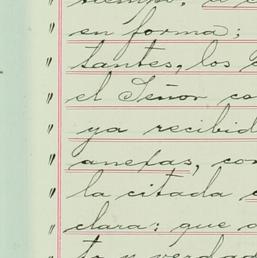 en forma;
tantes, los
el Señor
ya recibid
anefas, con
la citada
clara: que
to y verdad